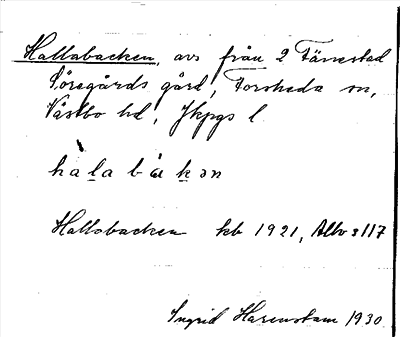 Hallabacken, avs från 2 Tånnestad
Söregårds gård, Forsheda sn,
Västbo hd, Jkpgs l
hala bakən
Hallabacken kb 1921, Allv s 117
Ingrid Harenstam 1930